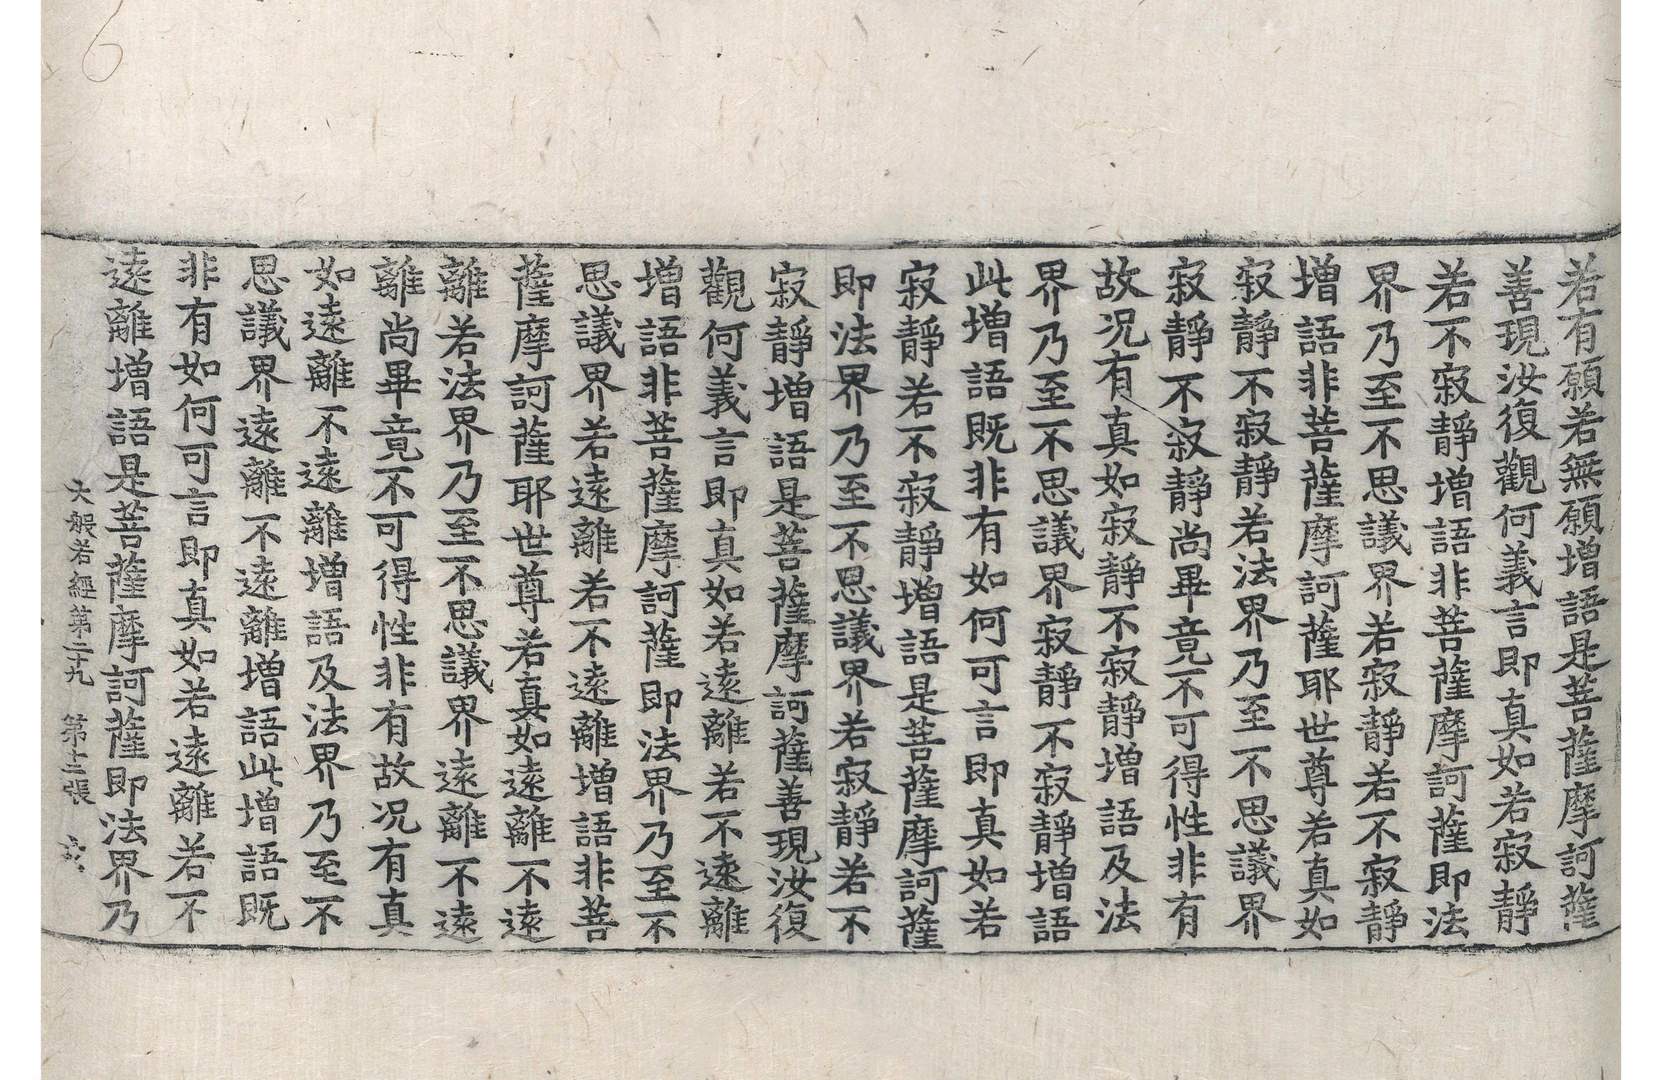 6
若有願若無願增語是菩薩摩訶薩
善現汝復觀何義言即真如若寂靜
若不寂靜增語非菩薩摩訶薩即法
界乃至不思議界若寂靜若不寂靜
增語非菩薩摩訶薩耶世尊若真如
寂靜不寂靜若法界乃至不思議界
寂靜不寂靜尚畢竟不可得性非有
故况有真如寂靜不寂靜增語及法
界乃至不思議界寂靜不寂靜增語
此增語既非有如何可言即真如若
寂靜若不寂靜增語是菩薩摩訶薩
即法界乃至不思議界若寂靜若不
寂靜增語是菩薩摩訶薩善現汝復
觀何義言即真如若遠離若不遠離
增語非菩薩摩訶薩即法界乃至不
思議界若遠離若不遠離增語非菩
薩摩訶薩耶世尊若真如遠離不遠
離若法界乃至不思議界遠離不遠
離尚畢竟不可得性非有故况有真
如遠離不遠離增語及法界乃至不
思議界遠離不遠離增語此增語既
非有如何可言即真如若遠離若不
遠離增語是菩薩摩訶薩即法界乃
大般若經第二十九 第十二張